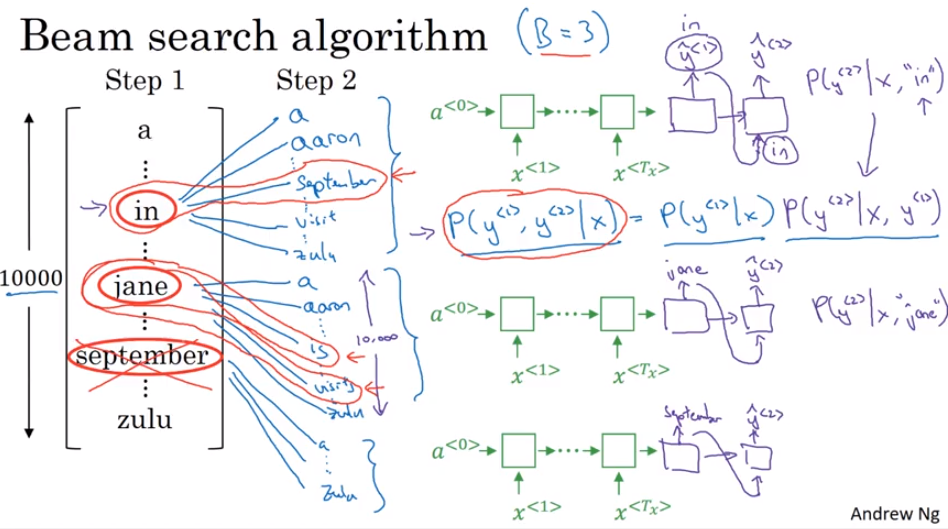 Beam search algorithm (B = 3)
Step 1 Step 2
10000
a
⋮
in
⋮
jane
⋮
september
⋮
zulu
a
aaron
⋮
September
⋮
visit
⋮
zulu
a
aaron
⋮
is
⋮
visits
⋮
zulu
10,000
a
⋮
zulu
a<0> ... x<1> x<Tx>
in
ŷ<1> ŷ<2>
in
P(y<2>|x, "in")
P(y<1>, y<2>|x) = P(y<1>|x) P(y<2>|x, y<1>)
a<0> ... x<1> x<Tx>
jane ŷ<2>
P(y<2>|x, "jane")
a<0> ... x<1> x<Tx>
September ŷ<2>
Andrew Ng